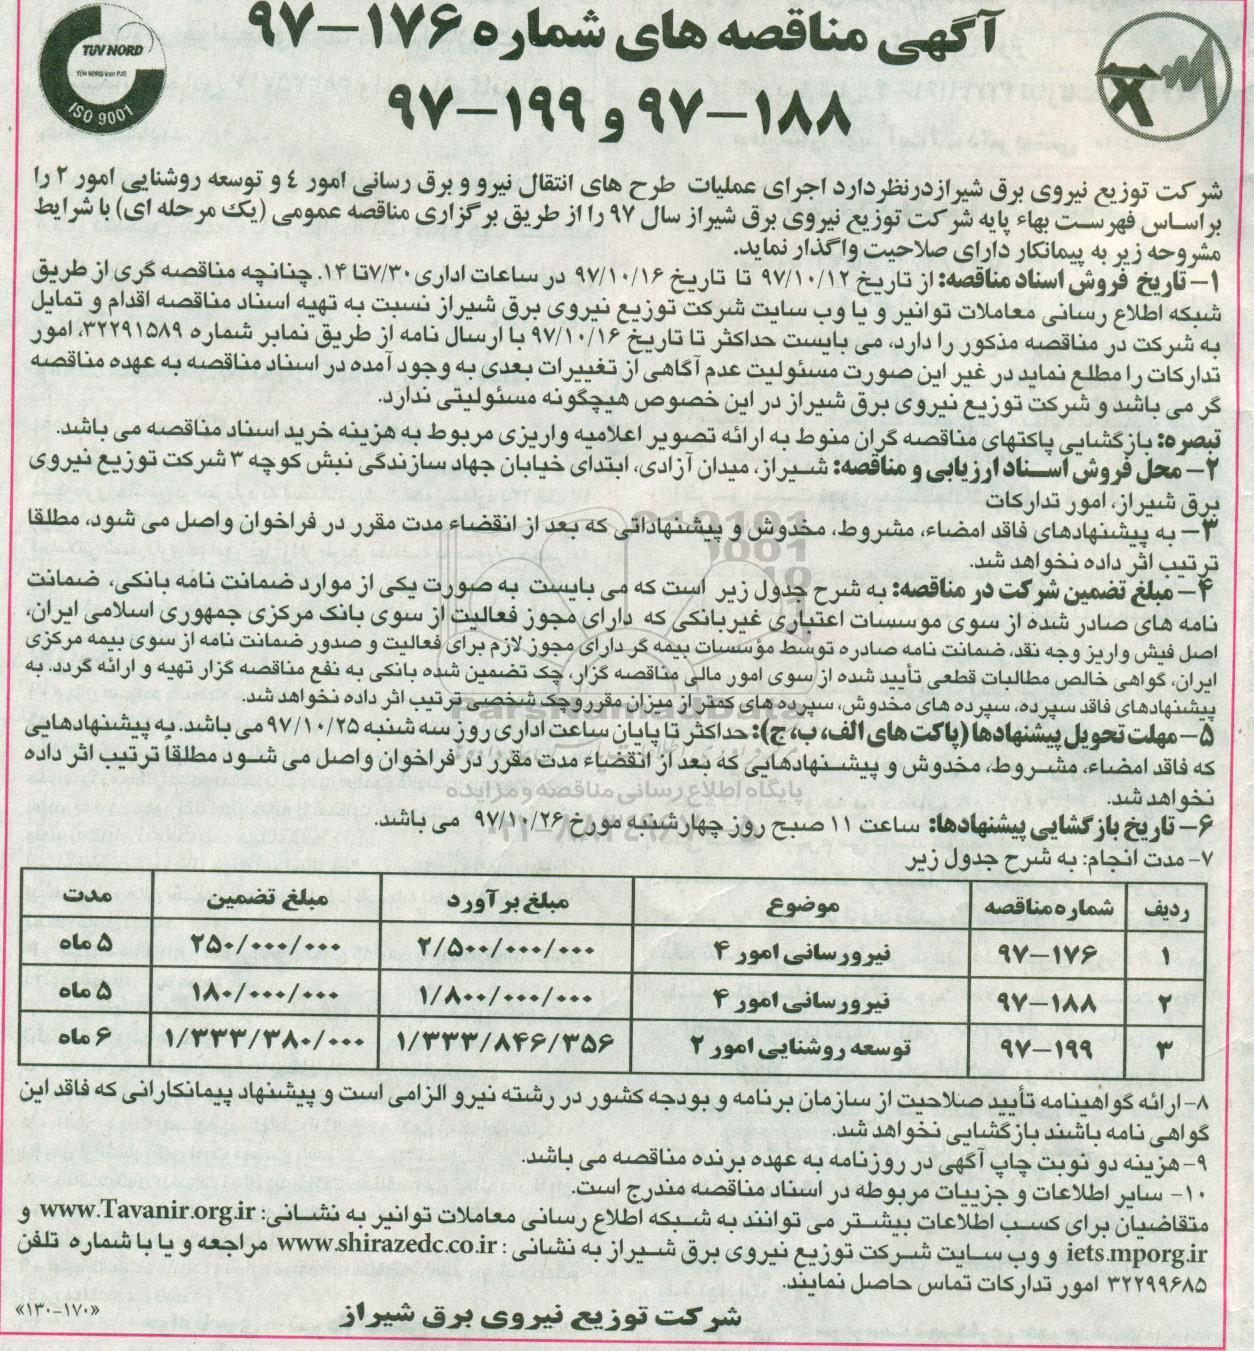 آگهی مناقصه های شماره ۱۷۶–۹۷
۱۸۸–۹۷ و ۱۹۹–۹۷
TÜV NORD
TÜV NORD Iran PJS
ISO 9001
شرکت توزیع نیروی برق شیرازدرنظردارد اجرای عملیات طرح های انتقال نیرو و برق رسانی امور ۴ و توسعه روشنایی امور ۲ را
براساس فهرست بهاء پایه شرکت توزیع نیروی برق شیراز سال ۹۷ را از طریق برگزاری مناقصه عمومی (یک مرحله ای) با شرایط
مشروحه زیر به پیمانکار دارای صلاحیت واگذار نماید.
۱– تاریخ فروش اسناد مناقصه: از تاریخ ۹۷/۱۰/۱۲ تا تاریخ ۹۷/۱۰/۱۶ در ساعات اداری ۷/۳۰تا ۱۴. چنانچه مناقصه گری از طریق
شبکه اطلاع رسانی معاملات توانیر و یا وب سایت شرکت توزیع نیروی برق شیراز نسبت به تهیه اسناد مناقصه اقدام و تمایل
به شرکت در مناقصه مذکور را دارد، می بایست حداکثر تا تاریخ ۹۷/۱۰/۱۶ با ارسال نامه از طریق نمابر شماره ۳۲۲۹۱۵۸۹، امور
تدارکات را مطلع نماید در غیر این صورت مسئولیت عدم آگاهی از تغییرات بعدی به وجود آمده در اسناد مناقصه به عهده مناقصه
گر می باشد و شرکت توزیع نیروی برق شیراز در این خصوص هیچگونه مسئولیتی ندارد.
تبصره: بازگشایی پاکتهای مناقصه گران منوط به ارائه تصویر اعلامیه واریزی مربوط به هزینه خرید اسناد مناقصه می باشد.
۲– محل فروش اسناد ارزیابی و مناقصه: شیراز، میدان آزادی، ابتدای خیابان جهاد سازندگی نبش کوچه ۳ شرکت توزیع نیروی
برق شیراز، امور تدارکات
۳– به پیشنهادهای فاقد امضاء، مشروط، مخدوش و پیشنهاداتی که بعد از انقضاء مدت مقرر در فراخوان واصل می شود، مطلقا
ترتیب اثر داده نخواهد شد.
۴– مبلغ تضمین شرکت در مناقصه: به شرح جدول زیر است که می بایست به صورت یکی از موارد ضمانت نامه بانکی، ضمانت
نامه های صادر شده از سوی موسسات اعتباری غیربانکی که دارای مجوز فعالیت از سوی بانک مرکزی جمهوری اسلامی ایران،
اصل فیش واریز وجه نقد، ضمانت نامه صادره توسط مؤسسات بیمه گر دارای مجوز لازم برای فعالیت و صدور ضمانت نامه از سوی بیمه مرکزی
ایران، گواهی خالص مطالبات قطعی تأیید شده از سوی امور مالی مناقصه گزار، چک تضمین شده بانکی به نفع مناقصه گزار تهیه و ارائه گردد. به
پیشنهادهای فاقد سپرده، سپرده های مخدوش، سپرده های کمتر از میزان مقرروچک شخصی ترتیب اثر داده نخواهد شد.
۵– مهلت تحویل پیشنهادها (پاکت های الف، ب، ج): حداکثر تا پایان ساعت اداری روز سه شنبه ۹۷/۱۰/۲۵ می باشد. به پیشنهادهایی
که فاقد امضاء، مشروط، مخدوش و پیشنهادهایی که بعد از انقضاء مدت مقرر در فراخوان واصل می شود مطلقاً ترتیب اثر داده
نخواهد شد.
پایگاه اطلاع رسانی مناقصه و مزایده
۶– تاریخ بازگشایی پیشنهادها: ساعت ۱۱ صبح روز چهارشنبه مورخ ۹۷/۱۰/۲۶ می باشد.
۷– مدت انجام: به شرح جدول زیر
ردیف شماره مناقصه موضوع مبلغ برآورد مبلغ تضمین مدت
۱ ۱۷۶–۹۷ نیرورسانی امور ۴ ۲/۵۰۰/۰۰۰/۰۰۰ ۲۵۰/۰۰۰/۰۰۰ ۵ ماه
۲ ۱۸۸–۹۷ نیرورسانی امور ۴ ۱/۸۰۰/۰۰۰/۰۰۰ ۱۸۰/۰۰۰/۰۰۰ ۵ ماه
۳ ۱۹۹–۹۷ توسعه روشنایی امور ۲ ۱/۳۳۳/۸۴۶/۳۵۶ ۱/۳۳۳/۳۸۰/۰۰۰ ۶ ماه
۸– ارائه گواهینامه تأیید صلاحیت از سازمان برنامه و بودجه کشور در رشته نیرو الزامی است و پیشنهاد پیمانکارانی که فاقد این
گواهی نامه باشند بازگشایی نخواهد شد.
۹– هزینه دو نوبت چاپ آگهی در روزنامه به عهده برنده مناقصه می باشد.
۱۰– سایر اطلاعات و جزییات مربوطه در اسناد مناقصه مندرج است.
متقاضیان برای کسب اطلاعات بیشتر می توانند به شبکه اطلاع رسانی معاملات توانیر به نشانی: www.Tavanir.org.ir و
iets.mporg.ir و وب سایت شرکت توزیع نیروی برق شیراز به نشانی : www.shirazedc.co.ir مراجعه و یا با شماره تلفن
۳۲۲۹۹۶۸۵ امور تدارکات تماس حاصل نمایند.
شرکت توزیع نیروی برق شیراز
«۱۳۰–۱۷۰»